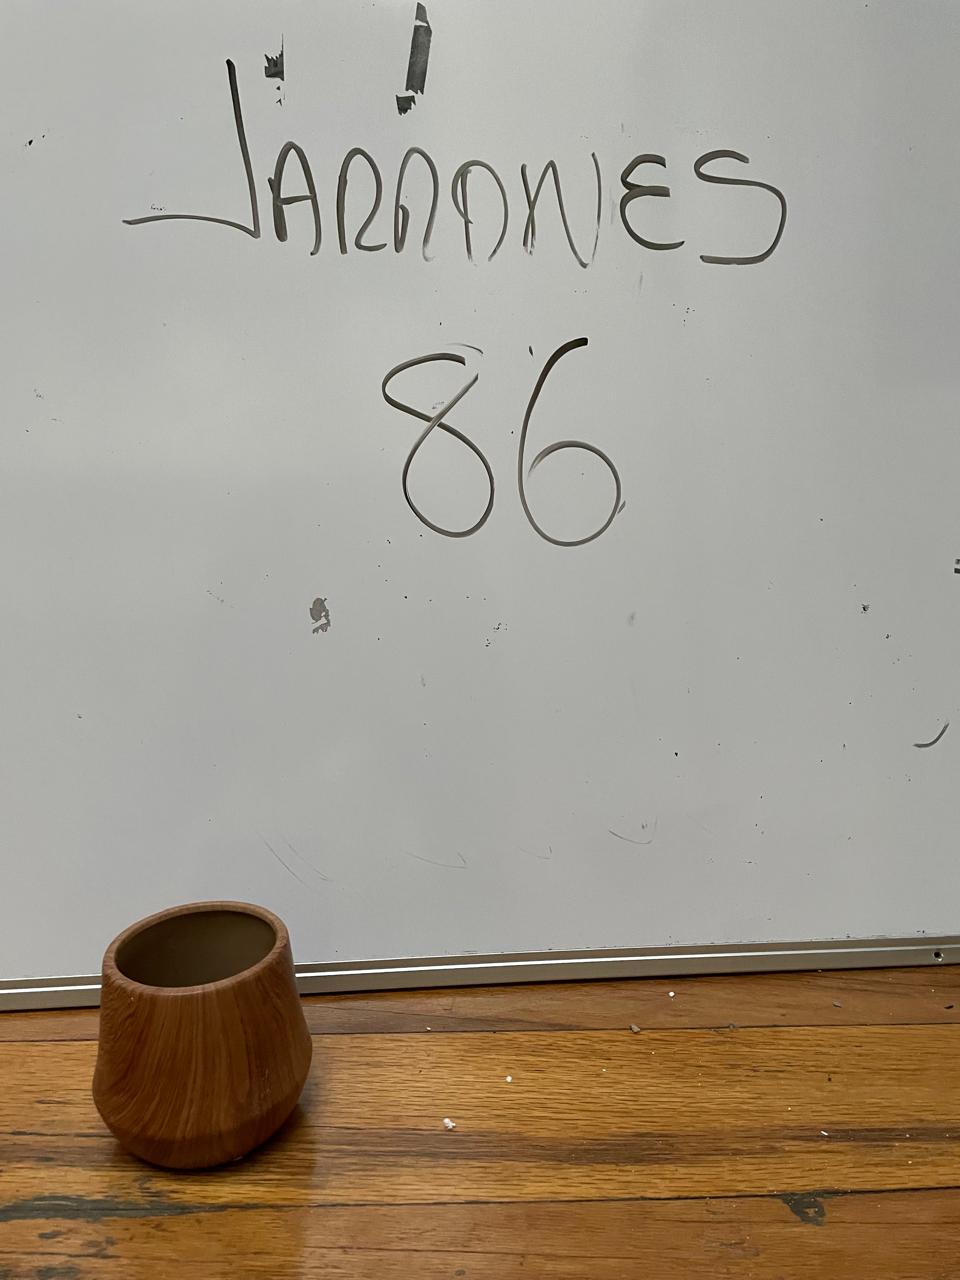 JARRONES
86